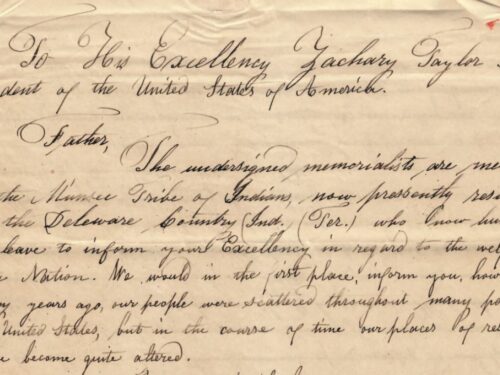 To His Excellency Zachary Taylor
dent of the United States of America.
Father,
The undersigned memorialists are me
the Munsee Tribe of Indians, now pressently resi
the Deleware Country (Ind. (Ter.) who now hu
leave to inform your Excellency in regard to the we
Nation. We would in the first place, inform you, how
years ago, our people were scattered throughout many po
United States, but in the course of time our places of res
become quite altered.